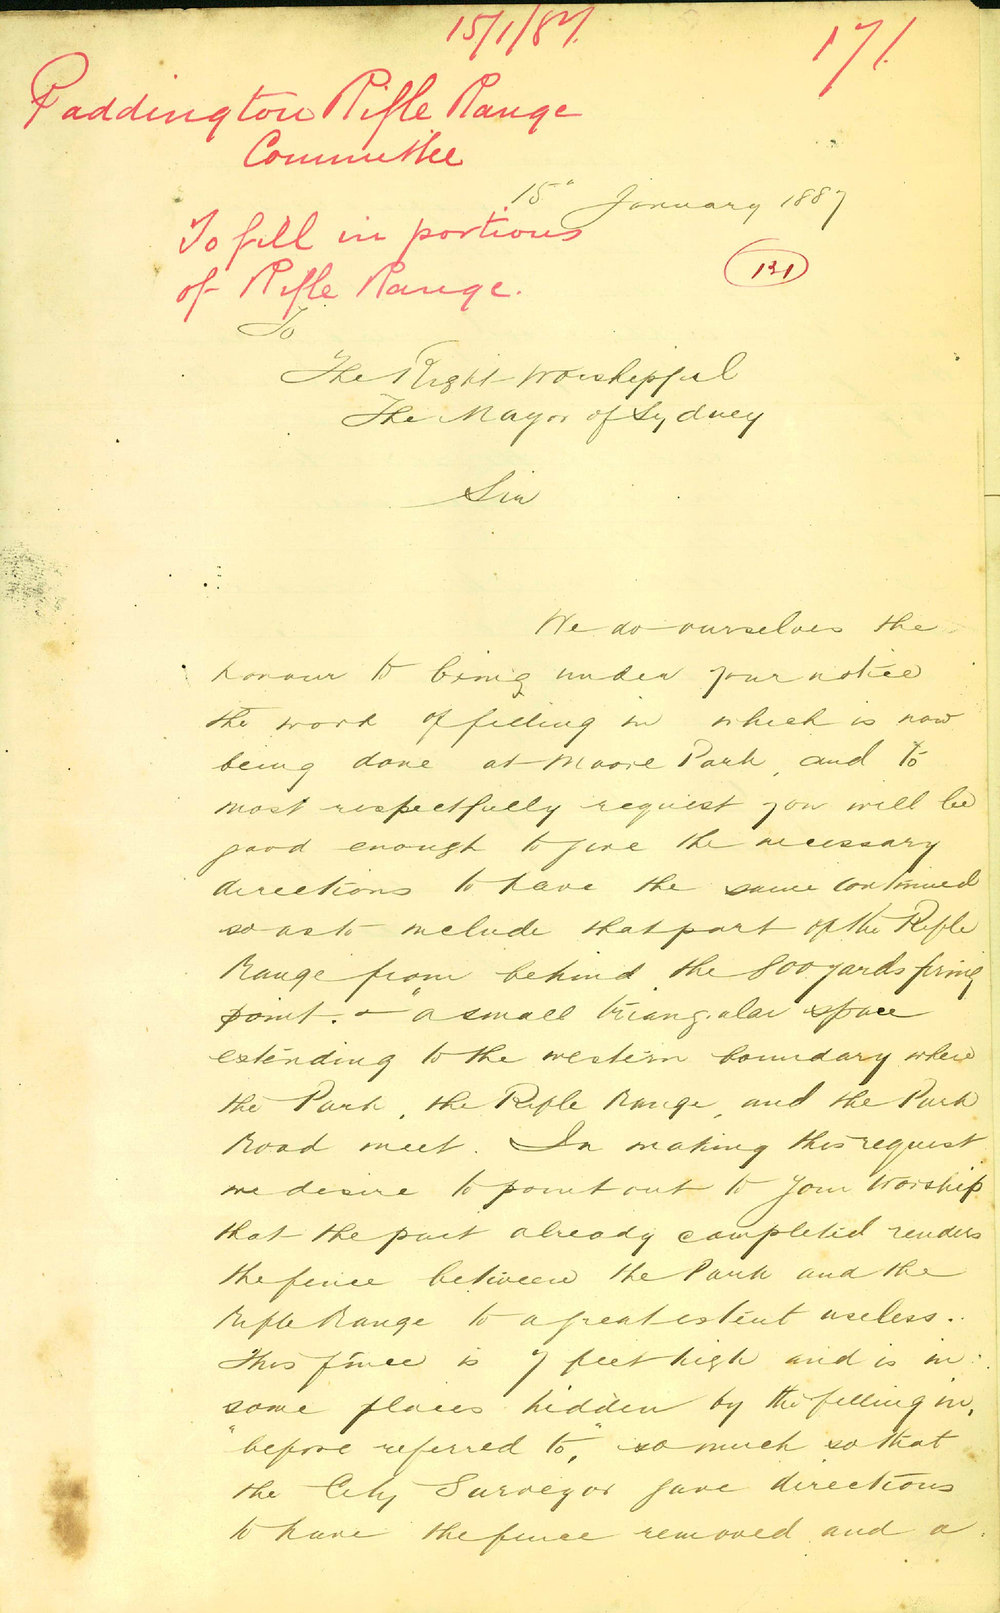 15/1/87.
171.
Paddington Rifle Range
Committee
15" January 1887
To fill in portions
of Rifle Range.
131
To
The Right Worshipful
The Mayor of Sydney
Sir
We do ourselves the
honour to bring under your notice
the work of filling in which is now
being done at Moore Park, and to
most respectfully request you will be
good enough to give the necessary
directions to have the same continued
so as to include that part of the Rifle
Range from behind the 800 yards firing
point. "a small triangular space
extending to the western boundary where
the Park, the Rifle Range, and the Park
Road meet. In making this request
we desire to point out to Your Worship
that the part already completed renders
the fence between the Park and the
Rifle Range to a great extent useless.
This fence is 7 feet high and is in
some places hidden by the filling in,
"before referred to," so much so that
the City Surveyor gave directions
to have the fence removed and a